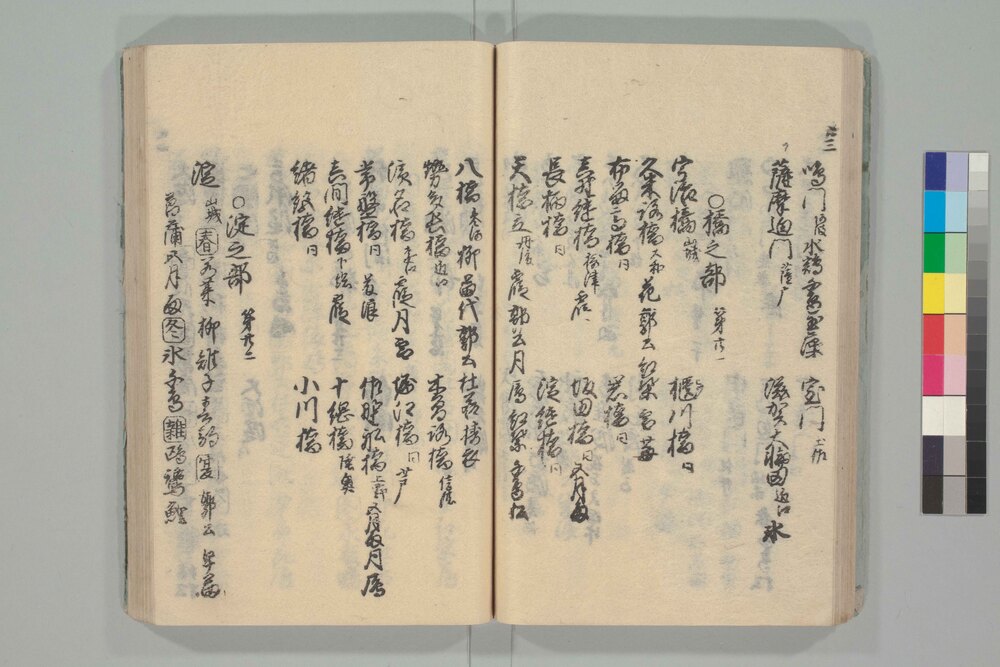 鳴門 水鶏 玉藻 室門
薩摩迫門 薩广 滋賀大輪田 近江 氷
○橋之部 第廿一
宇治橋 山城 堰川橋 同
久米路橋 大和 花 郭公 紅葉 雪
布留高橋 同 思橋 同
轟橋 摂津 霞 坂田橋 同 五月雨
長柄橋 同 淀継橋 同
天橋立 丹后 霞 郭公 月 雁 紅葉 千鳥
八橋 参河 柳 苗代 郭公 杜若 擣衣
勢多長橋 近江 木曽路橋 信濃
浜名橋 遠江 霞 月 雪 堀江橋 同
常盤橋 同 藤浪 佐野舟橋 上野 五月雨 月 雁
真間継橋 下総 霞 十綱橋 陸奥
緒絶橋 同 小川橋
○淀之部 第廿二
淀 山城 春 若菜 柳 雉子 春駒 夏 郭公 早苗
菖蒲 五月雨 冬 氷 千鳥 雑 鴎 鷺 鯉